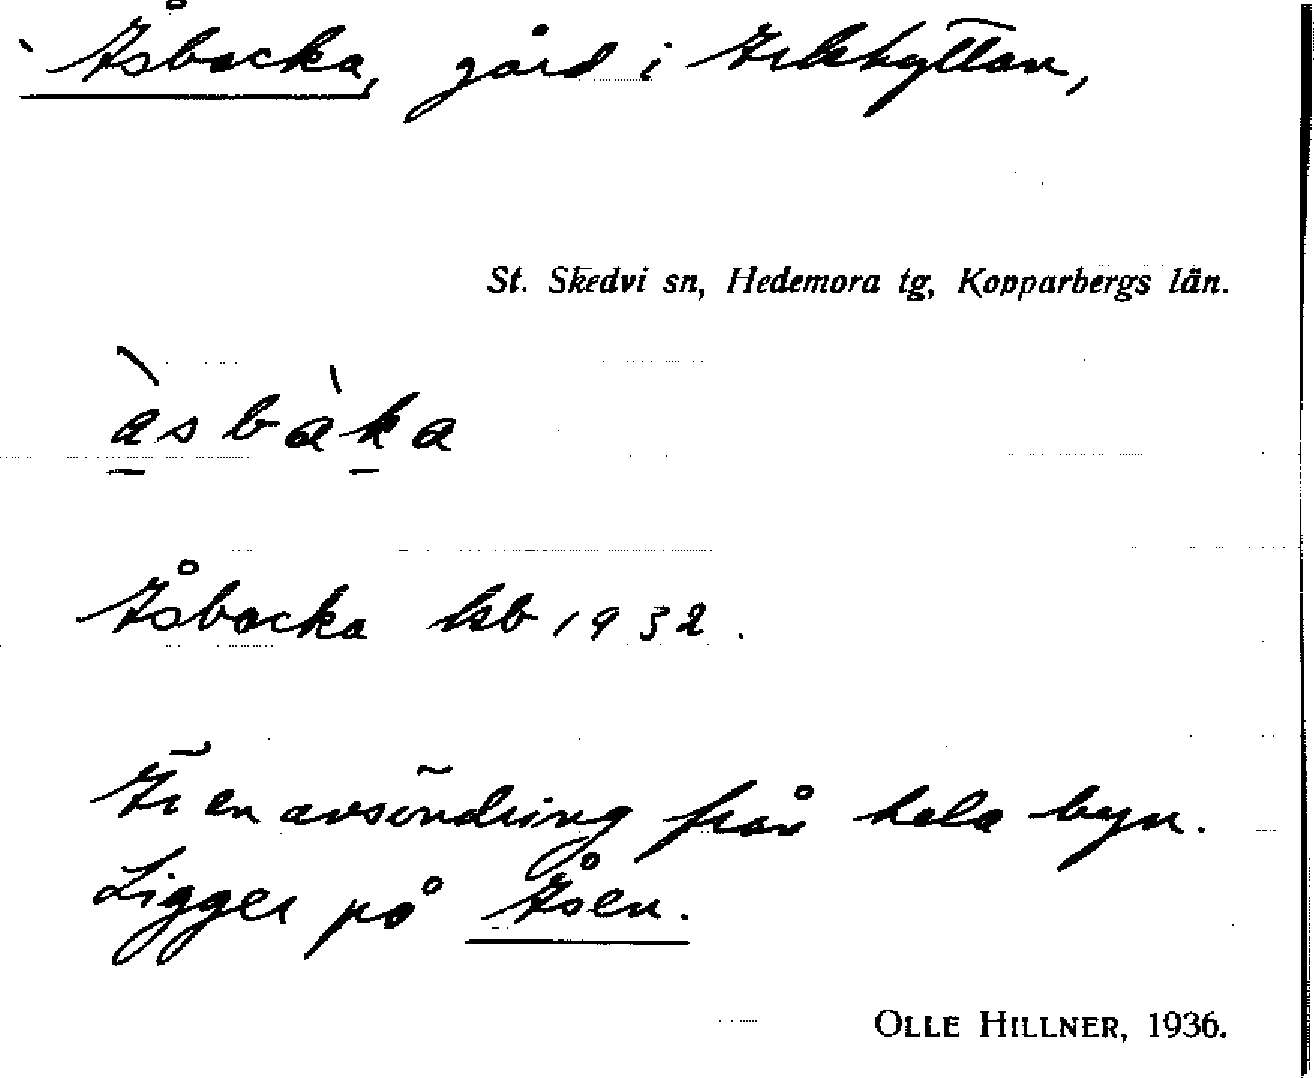 Åsbacka, gård i Arkhyttan,
St. Skedvi sn, Hedemora tg, Kopparbergs län.
Åsbacka ksb 1932.
Är en avsöndring från hela byn.
Ligger på Åsen.
OLLE HILLNER, 1936.